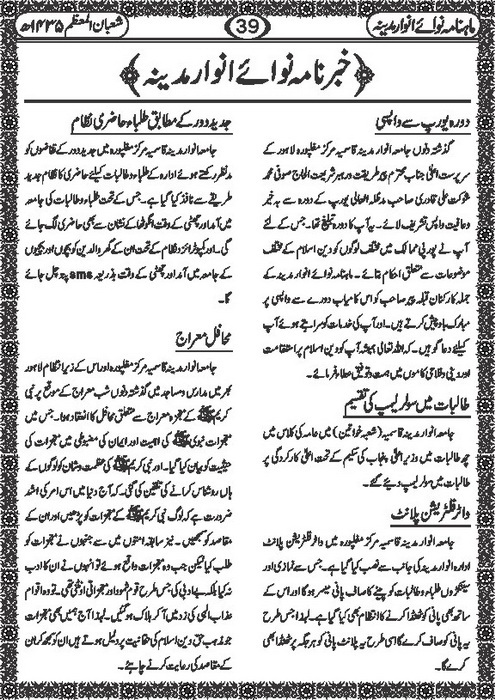 ماہنامہ نوائے انوار مدینہ
39
شعبان المعظم ۱۴۳۵ھ
خبر نامہ نوائے انوار مدینہ
دورہ یورپ سے واپسی
گذشتہ دنوں جامعہ انوار مدینہ قاسمیہ مرکز مغلپورہ لاہور کے
سرپرست اعلیٰ جناب محترم پیر طریقت رہبر شریعت الحاج صوفی محمد
شوکت علی قادری صاحب مدظلہ العالی یورپ کے دورہ سے بہ خیر
وعافیت واپس تشریف لائے۔ یہ آپ کا دورہ تبلیغ تھا۔ جس کے لئے
آپ نے یورپی ممالک میں مختلف لوگوں کو دین اسلام کے مختلف
موضوعات سے متعلق احکام بتائے۔ ماہنامہ نوائے انوار مدینہ کے
جملہ کارکنان قبلہ پیر صاحب کو اس کامیاب دورے سے واپسی پر
مبارک باد پیش کرتے ہیں۔ اور آپ کی خدمات کو سراہتے ہوئے آپ
کیلئے دعا گو ہیں۔ کہ اللہ تعالیٰ ہمیشہ آپ کو دین اسلام پر استقامت
اور دینی وفلاحی کاموں میں ہمت وتوفیق عطاء فرمائے۔
طالبات میں سولر لیمپ کی تقسیم
جامعہ انوار مدینہ قاسمیہ (شعبہ خواتین) میں عامہ کی کلاس میں
چھ طالبات میں وزیر اعلیٰ پنجاب کی سکیم کے تحت اعلیٰ کارکردگی پر
طالبات میں سولر لیمپ دیئے گئے۔
واٹر فلٹریشن پلانٹ
جامعہ انوار مدینہ قاسمیہ مرکز مغلپورہ میں واٹر فلٹریشن پلانٹ
ادارہ انوار مدینہ کی جانب سے نصب کیا گیا ہے۔ جس سے نمازی اور
سینکڑوں طلباء وطالبات کو پینے کا صاف پانی میسر ہو گا اور اس کے
ساتھ بھی پانی کو ٹھنڈا کرنے کا انتظام بھی کیا گیا ہے۔ لہذا جس طرح
یہ پانی کو صاف کرے گا اسی طرح یہ پلانٹ پانی کو ہر جگہ پر ٹھنڈا بھی
کرے گا۔
جدید دور کے مطابق طلباء حاضری نظام
جامعہ انوار مدینہ قاسمیہ مرکز مغلپورہ میں جدید دور کے تقاضوں کو
مدنظر رکھتے ہوئے ادارہ کے طلباء وطالبات کیلئے حاضری کا نظام جدید
طریقے سے نافذ کیا گیا ہے۔ جس کے تحت طلباء وطالبات کی جامعہ
میں آمد اور چھٹی کے وقت انگوٹھا کے نشان سے بھی حاضری لگ جائے
گی۔ اور کمپیوٹرائزڈ نظام کے تحت ان کے گھر والدین کو بچوں اور بچیوں
کے جامعہ میں آمد اور چھٹی کے وقت بذریعہ sms پتہ چل جائے
گا۔
محافل معراج
جامعہ انوار مدینہ قاسمیہ مرکز مغلپورہ اور اس کے زیر انتظام لاہور
بھر میں مدارس ومساجد میں گذشتہ دنوں شب معراج کے موقع پر نبی
کریم ﷺ کے معجزہ معراج سے متعلق محافل کا انعقاد ہوا۔ جس میں
معجزات نبوی ﷺ کی اہمیت اور ایمان کی مضبوطی میں معجزات کی
حیثیت کو بیان کیا گیا۔ اور نبی کریم ﷺ کی عظمت وشان کو لوگوں کے
ہاں روشناس کرانے کی تلقین کی گئی۔ کہ آج دنیا میں اس امر کی اشد
ضرورت ہے کہ لوگ نبی کریم ﷺ کے معجزات کو پڑھیں اور ان کے
مقاصد کو سمجھیں۔ نیز سابقہ امتوں میں سے جنہوں نے معجزات کو
طلب کیا لیکن جب وہ معجزات واقع ہوئے تو انہوں نے ان کا ادب
نہ کیا بلکہ بے ادبی کی جس طرح قوم ثمود اور معجزاتی اونٹنی تھی۔ تو وہ اقوام
عذاب الٰہی کی زد میں آ کر ہلاک ہو گئیں۔ لہذا آج ہمیں بھی معجزات
جو مذہب حق دین اسلام کی حقانیت پر دلیل ہوتے ہیں ان کو سمجھ کر ان
کے مقاصد کی رعایت کرنے چاہئے۔